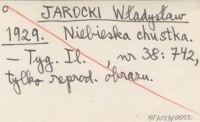 JAROCKI Władysław
1929. Niebieska chustka.
— Tyg. Il., nr 38: 742,
tylko reprod. obrazu.